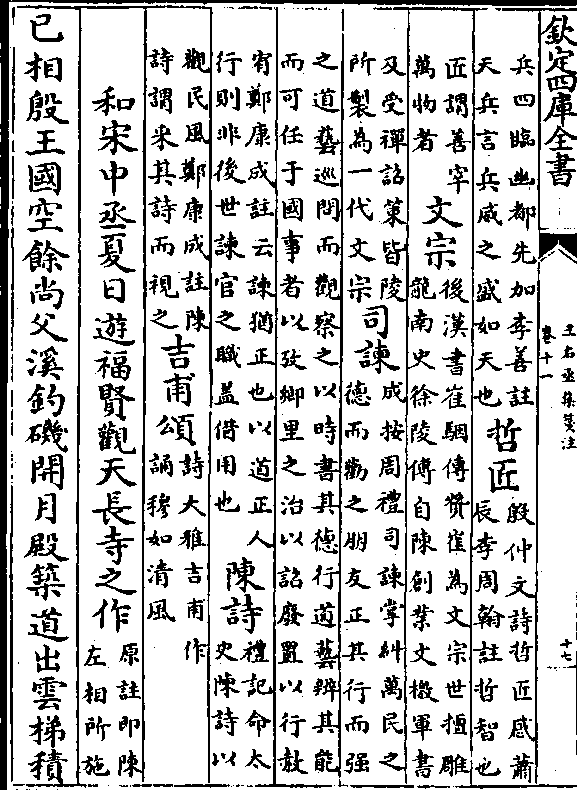 欽定四庫全書
王右丞集箋注
卷十一
十七
兵四臨幽都先加李善註
天兵言兵威之盛如天也
哲匠
殷仲文詩哲匠感蕭
辰李周翰註哲智也
匠謂善宰
萬物者
文宗
後漢書崔駰傳贊崔為文宗世擅雕
龍南史徐陵傳自陳創業文檄軍書
及受禪詔策皆陵
所製為一代文宗
司諫
成按周禮司諫掌糾萬民之
德而勸之朋友正其行而强
之道藝巡問而觀察之以時書其德行道藝辨其能
而可任于國事者以攷鄉里之治以詔廢置以行赦
宥鄭康成註云諫猶正也以道正人
行則非後世諫官之職葢借用也
陳詩
禮記命太
史陳詩以
觀民風鄭康成註陳
詩謂采其詩而視之
吉甫頌
詩大雅吉甫作
誦穆如清風
和宋中丞夏日遊福賢觀天長寺之作
原註即陳
左相所施
已相殷王國空餘尚父溪釣磯開月殿築道出雲梯積